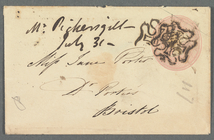 Mr Pickersgill
July 31 -
Miss Jane Porter
Dr Porter's
Bristol